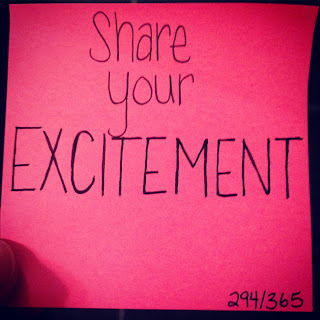 Share
your
EXCITEMENT
294/365